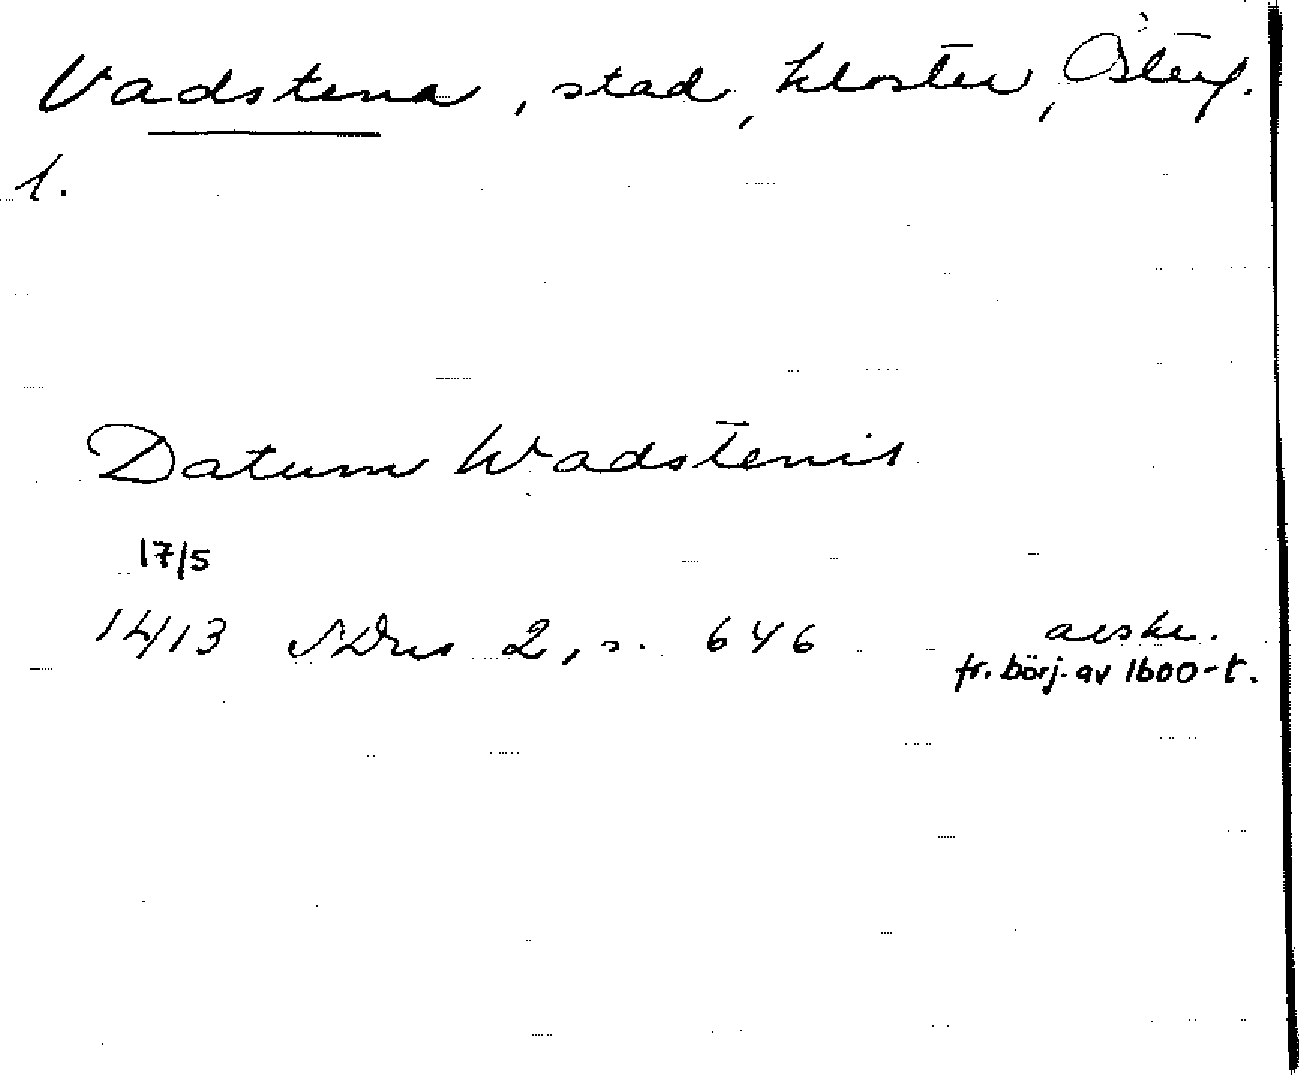 Vadstena, stad, kloster, Österg.
l.
Datum Wadstenis
17/5
1413 SDns 2, s. 646 avskr.
fr. börj. av 1600-t.